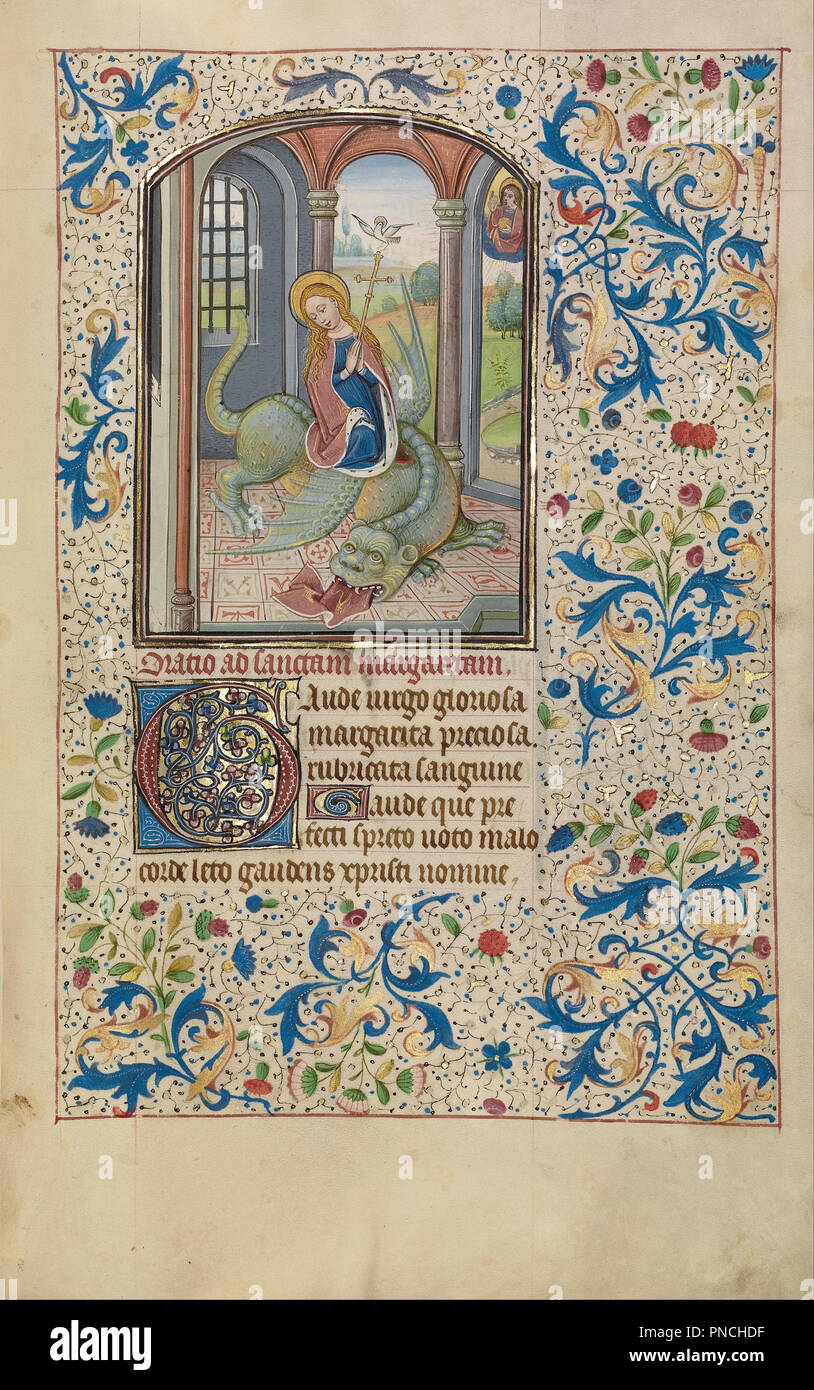 Oratio ad sanctam margaretam.
Gaude uirgo gloriosa
margarita preciosa.
rubricata sanguine
Gaude que pre
fecti spreto uoto malo
corde leto gaudens xpristi nomine.
a
alamy
alamy stock photo
PNCHDF
www.alamy.com